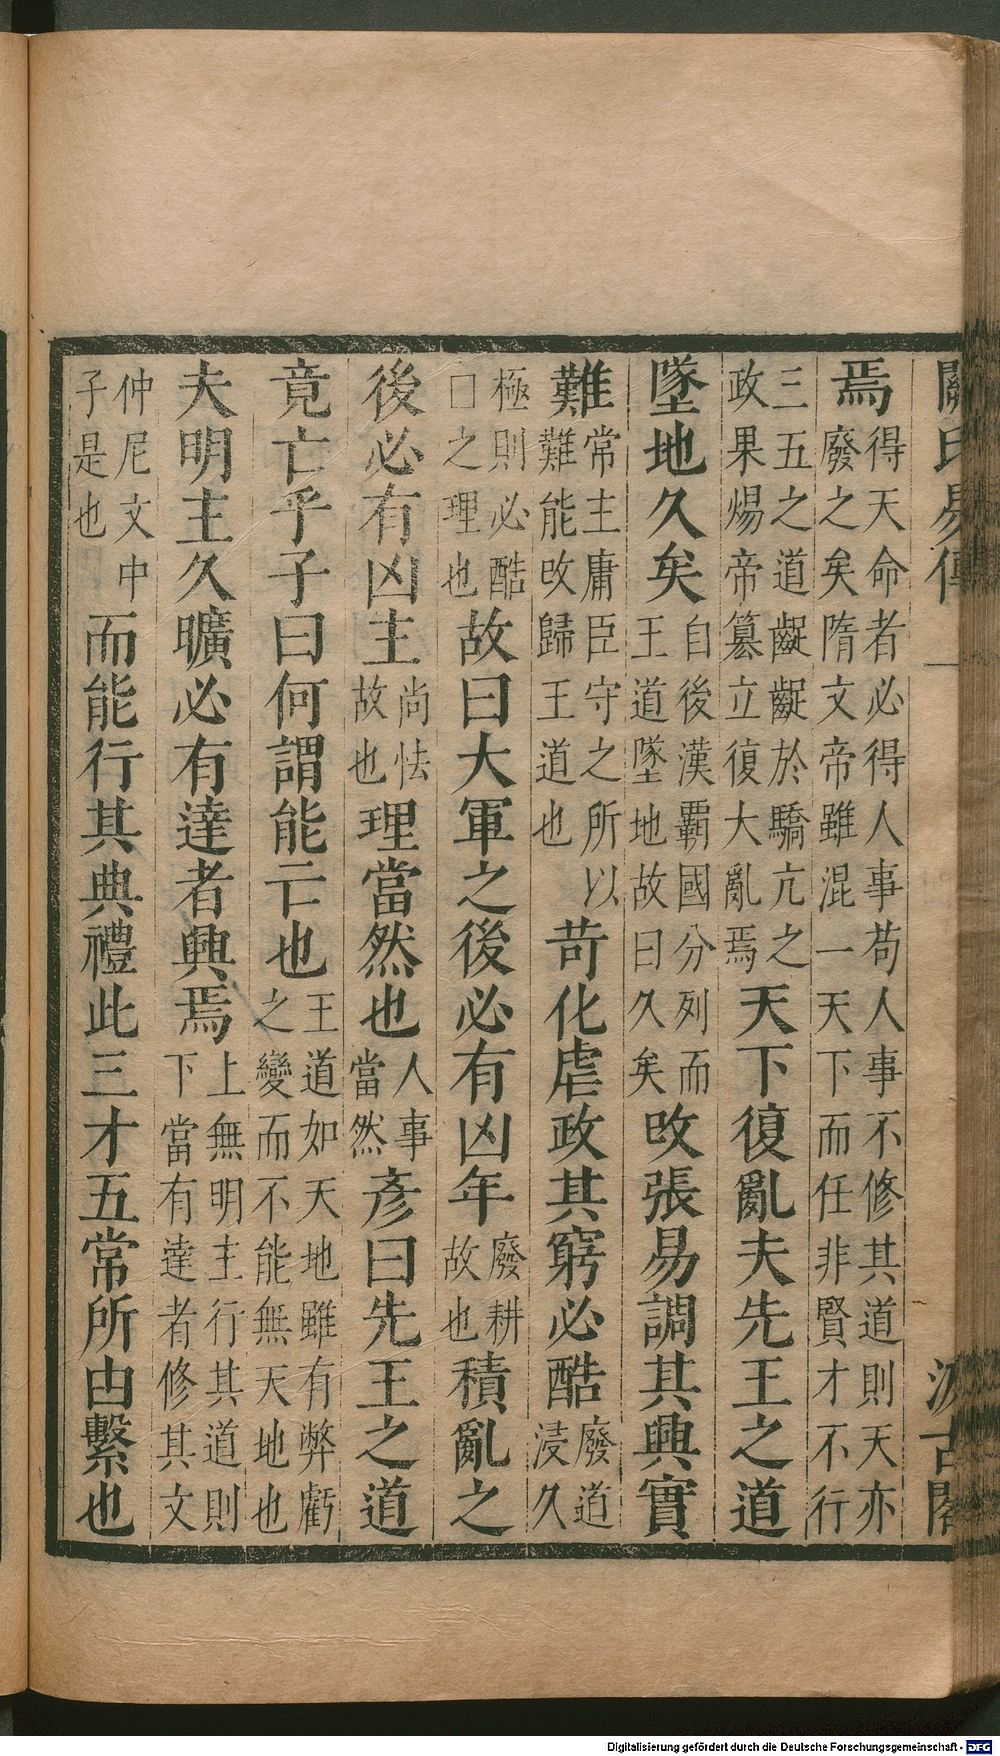 關氏易傳 一 汲古閣
焉得天命者必得人事苟人事不修其道則天亦廢之矣隋文帝雖混一天下而任非賢才不行
三五之道齪齪於驕亢之政果煬帝篡立復大亂焉天下復亂夫先王之道
墜地久矣自後漢霸國分列而王道墜地故曰久矣改張易調其興實
難常主庸臣守之所以難能改歸王道也苛化虐政其窮必酷廢道浸久
極則必酷□之理也故曰大軍之後必有凶年廢耕故也積亂之
後必有凶主尚怯故也理當然也人事當然彥曰先王之道
竟亡乎子曰何謂能亡也王道如天地雖有弊虧之變而不能無天地也
夫明主久曠必有達者興焉上無明主行其道則下當有達者修其文
仲尼文中子是也而能行其典禮此三才五常所由繫也
Digitalisierung gefördert durch die Deutsche Forschungsgemeinschaft - DFG